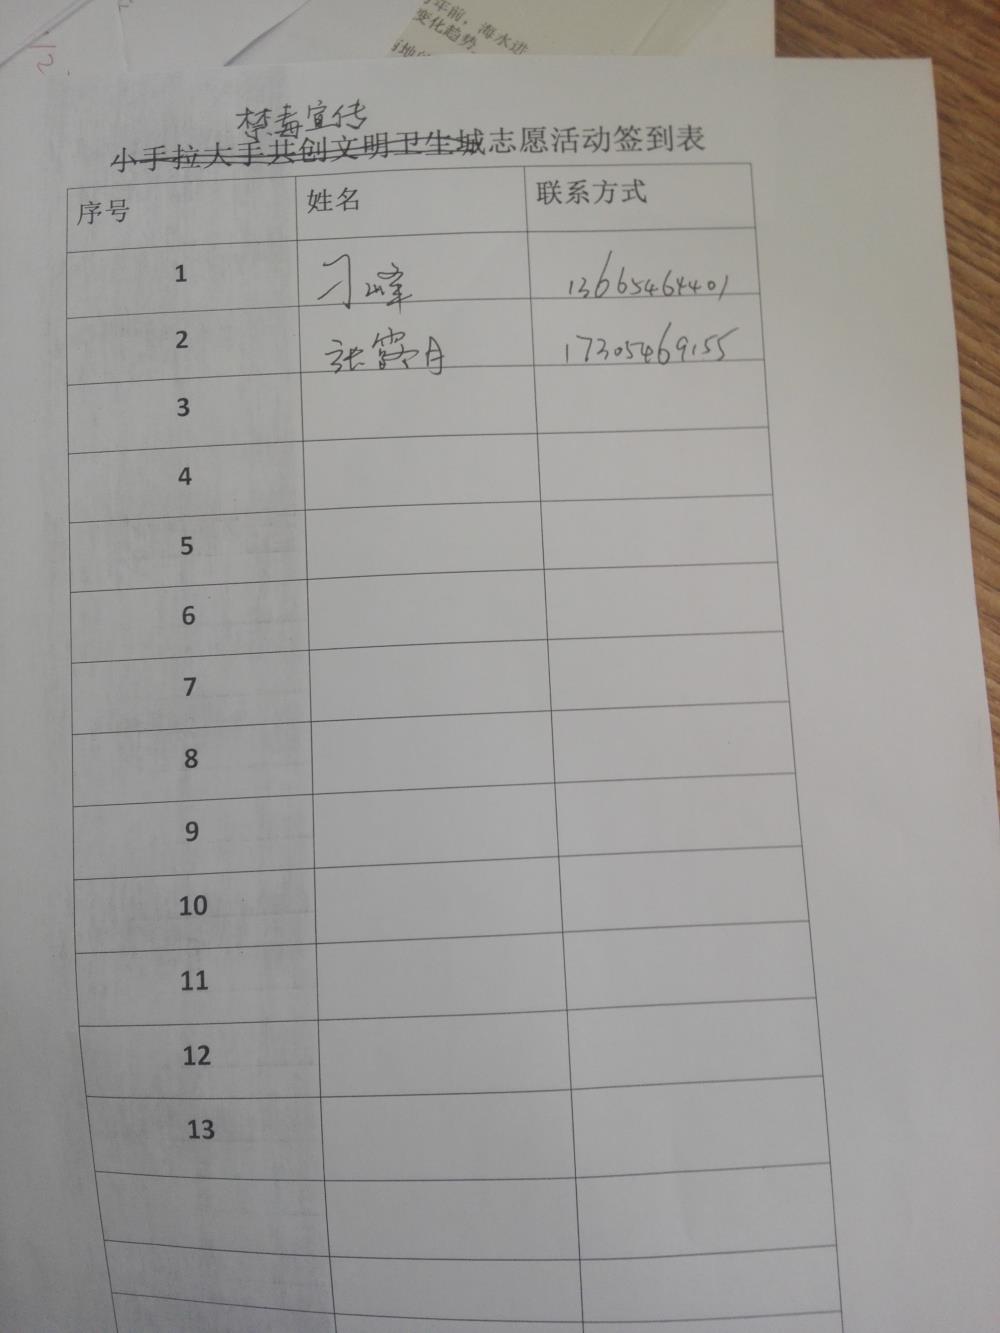 年前，海水进
变化趋势
禁毒宣传
小手拉大手共创文明卫生城志愿活动签到表
序号 姓名 联系方式
1 刁峰 13665464401
2 张露月 17305469155
3
4
5
6
7
8
9
10
11
12
13